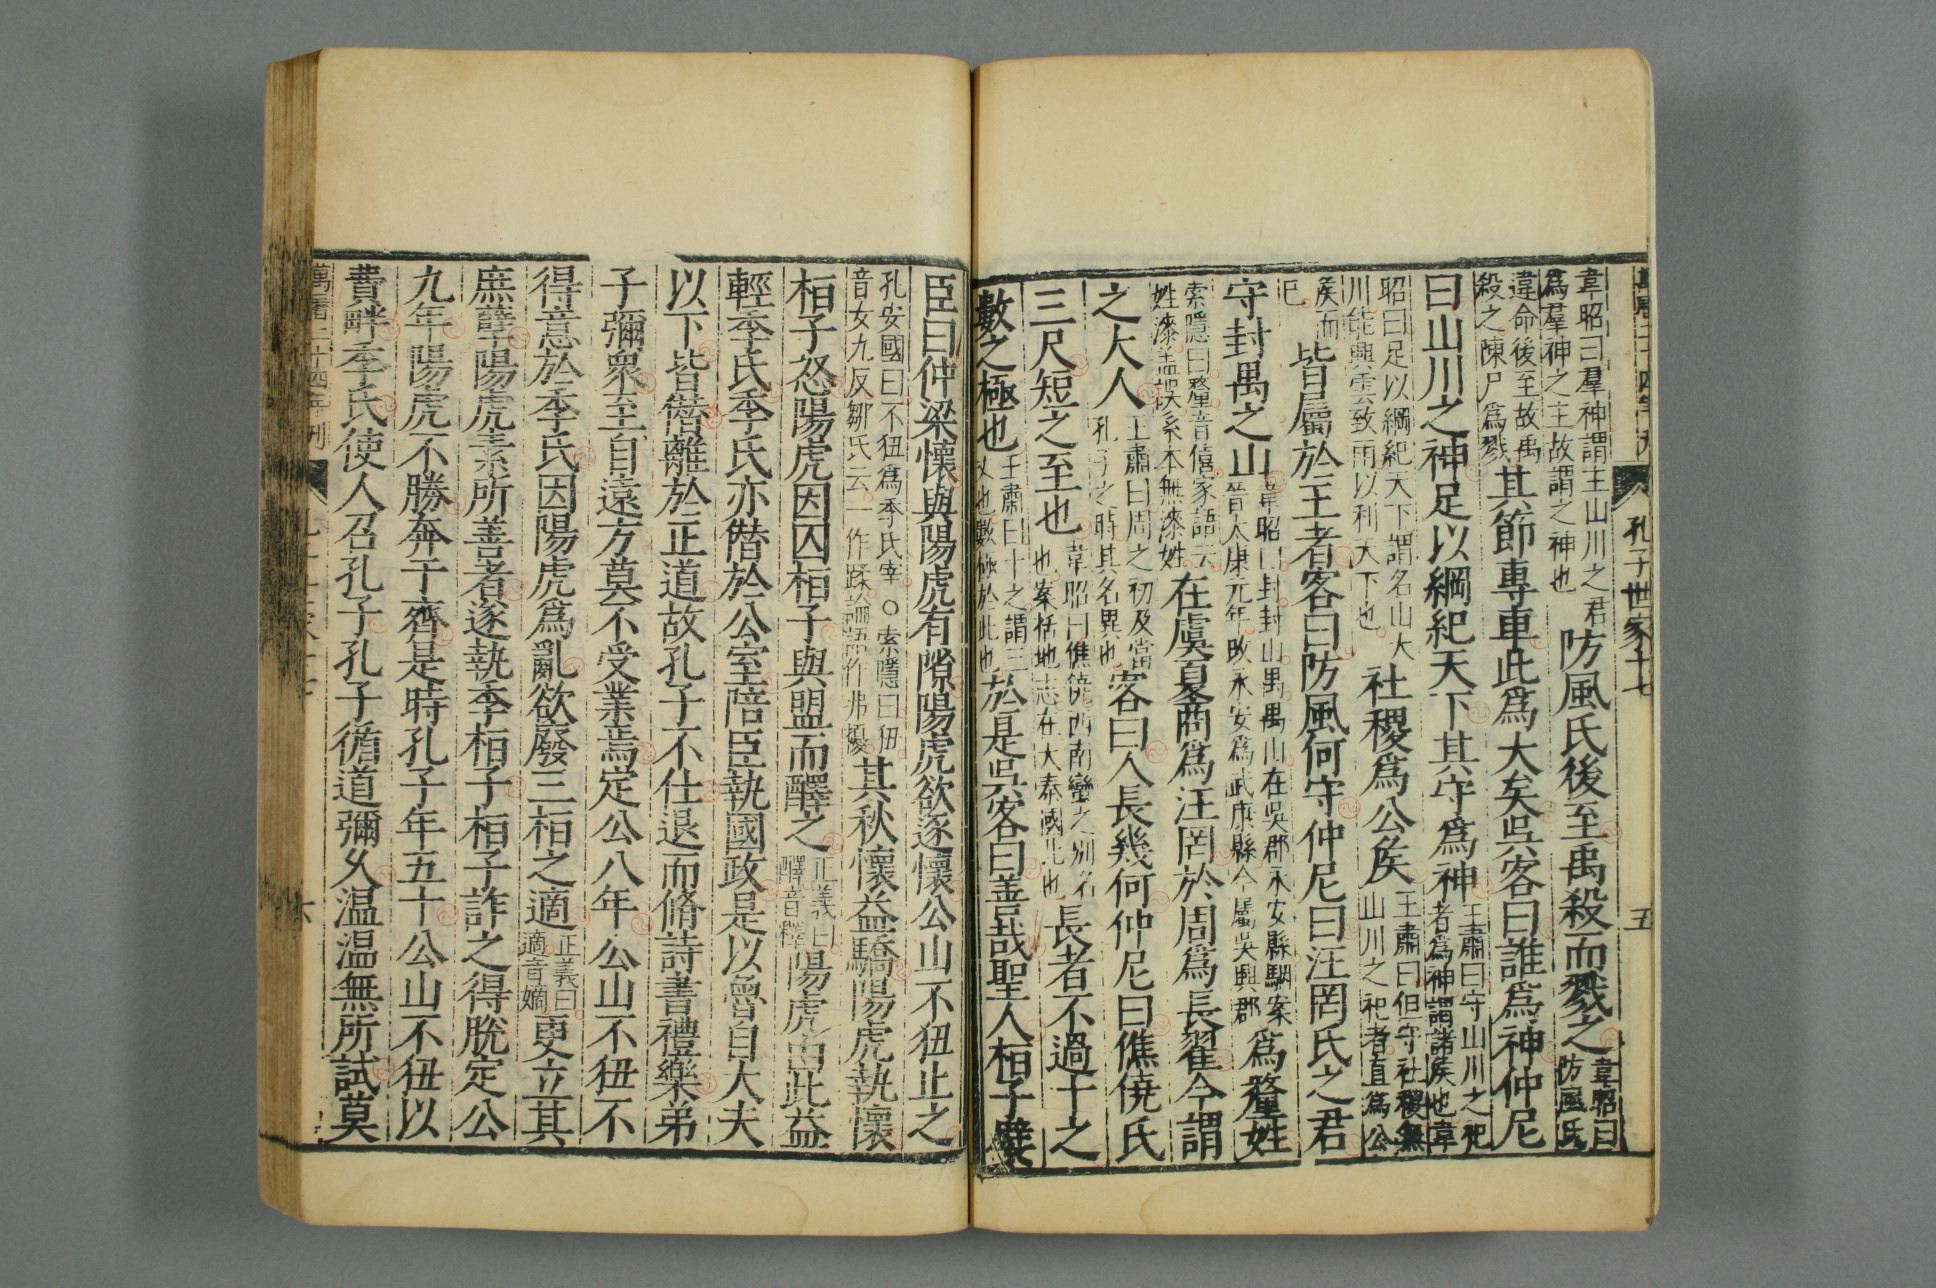 萬曆二十四年刊　孔子世家十七　五
韋昭曰羣神謂主山川之君
為羣神之主故謂之神也
防風氏後至禹殺而戮之
韋昭曰
防風氏
違命後至故禹
殺之陳尸為戮
其節專車此為大矣吳客曰誰為神仲尼
曰山川之神足以綱紀天下其守為神
王肅曰守山川之祀
者為神謂諸侯也韋
昭曰足以綱紀天下謂名山大
川能興雲致雨以利天下也
社稷為公侯
王肅曰但守社稷無
山川之祀者直為公
侯而
已
皆屬於王者客曰防風何守仲尼曰汪罔氏之君
守封禺之山
韋昭曰封封山禺禺山在吳郡永安縣駰案
晉太康元年改永安為武康縣今屬吳興郡
為釐姓
索隱曰釐音僖家語云
姓漆蓋誤系本無漆姓
在虞夏商為汪罔於周為長翟今謂
之大人
王肅曰周之初及當
孔子之時其名異也
客曰人長幾何仲尼曰僬僥氏
三尺短之至也
韋昭曰僬僥西南蠻之別名
也案括地志在大秦國北也
長者不過十之
數之極也
王肅曰十之謂三
丈也數極於此也
於是吳客曰善哉聖人桓子嬖
臣曰仲梁懷與陽虎有隙陽虎欲逐懷公山不狃止之
孔安國曰不狃為季氏宰○索隱曰狃
音女九反鄒氏云一作蹂論語作弗擾
其秋懷益驕陽虎執懷
桓子怒陽虎因囚桓子與盟而醳之
正義曰
醳音釋
陽虎由此益
輕季氏季氏亦僭於公室陪臣執國政是以魯自大夫
以下皆僭離於正道故孔子不仕退而脩詩書禮樂弟
子彌衆至自遠方莫不受業焉定公八年公山不狃不
得意於季氏因陽虎為亂欲廢三桓之適
正義曰
適音嫡
更立其
庶孽陽虎素所善者遂執季桓子桓子詐之得脫定公
九年陽虎不勝奔于齊是時孔子年五十公山不狃以
費畔季氏使人召孔子孔子循道彌久溫溫無所試莫
萬曆二十四年刊
六